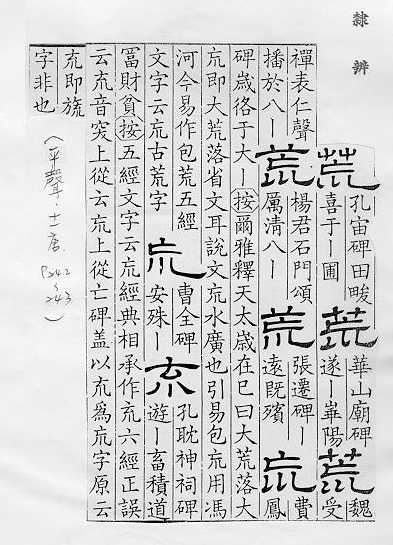 隸辨
荒
孔宙碑田畯
喜于丨圃
荒
華山廟碑
遂丨崋陽
荒
魏
受
禪表仁聲
播於八丨
荒
楊君石門頌
厲清八丨
荒
張遷碑丨
遠既殯
巟
費
鳳
碑歲𢓜于大丨按爾雅釋天太歲在巳曰大荒落大
巟即大荒落省文耳說文巟水廣也引易包巟用馮
河今易作包荒五經
文字云巟古荒字
巟
曹全碑
安殊丨
㐬
孔耽神祠碑
遊丨畜積道
冨財貧按五經文字云巟經典相承作㐬六經正誤
云㐬音突上從云巟上從亡碑盖以㐬爲巟字原云
㐬即旒
字非也
(平聲十一唐
P242
~
243)